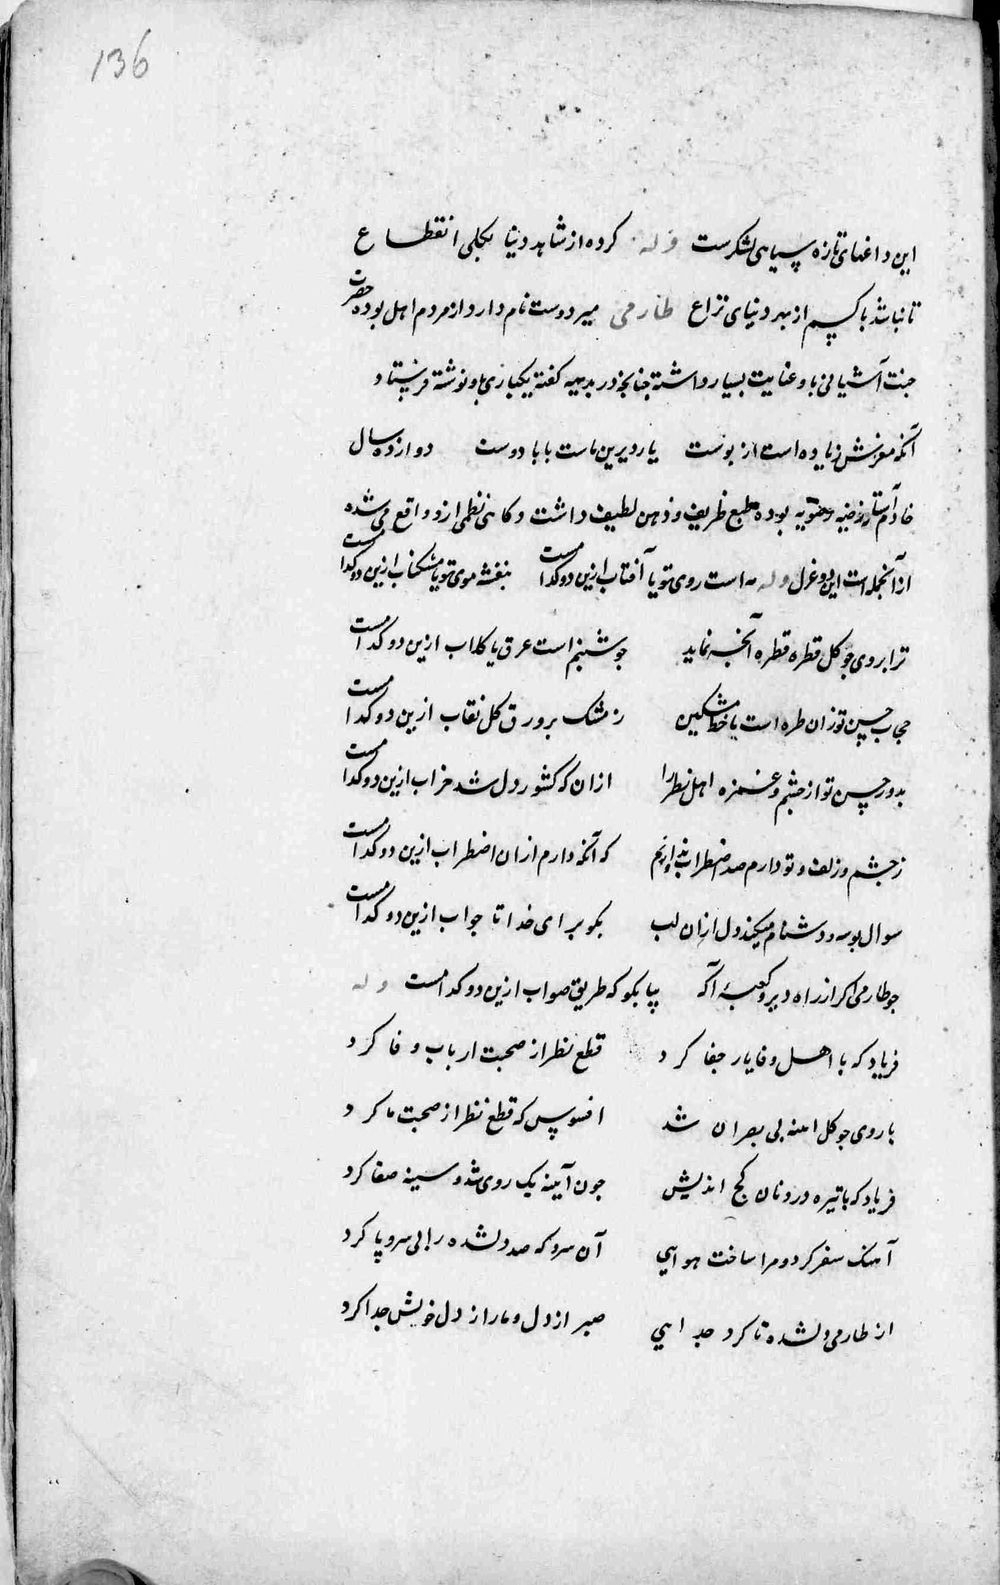 136
این داغهای تازه سیاهی لشکرست وله کرده از شاهد دنیا بکلی انقطاع
تا نباشد با کسم از بهر دنیای نزاع طارمی میر دوست نام دارد از مردم اهل بوده حضرت
جنت آشیانی باو عنایت بسیار داشته چنانچه در بدیهه گفته یکباری باو نوشته فرستاد
آنکه مغزش زیاده است از پوست یار دیرین ماست بابا دوست دوازده سال
خادم آستان رضیه رضویه بوده طبع ظریف و ذهن لطیف داشت و کاهی نظمی ازو واقع می شده
از آنجمله است این دو غزل وله مه است روی تو یا آفتاب ازین دو کدامست بنفشه موی تو یا مشکناب ازین دو کدامست
ترا بروی چو کل قطره قطره آنچه نماید چو شبنم است عرق یا کلاب ازین دو کدامست
حجاب حسن تو زان طره است یا خط مشکین ز مشک بر ورق کل نقاب ازین دو کدامست
بدور حسن تو از چشم و غمزه اهل نظر را ازان که کشور دل شد خراب ازین دو کدامست
ز چشم و زلف و تو دارم صد اضطراب ندانم که آنکه دارم ازان اضطراب ازین دو کدامست
سوال بوسه و دشنام میکند دل ازان لب بکو برای خدا تا جواب ازین دو کدامست
چو طارمی اکر از راه دیر و کعبهٔ آکه بیا بکو که طریق صواب ازین دو کدامست وله
فریاد که با اهل وفا یار جفا کرد قطع نظر از صحبت ارباب وفا کرد
با روی چو کل بی بصران شد افسوس که قطع نظر از صحبت ما کرد
فریاد که با تیره درونان کج اندیش چون آیینه یک روی شد و سینه صفا کرد
آهنک سفر کرد و مرا ساخت هوایی آن سرو که صد دلشده را بی سر و پا کرد
از طارمی دلشده تا کرد جدایی صبر از دل و ما را ز دل خویش جدا کرد